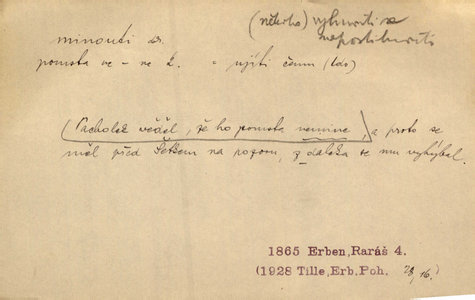 (někoho) vyhnouti se
nepostihnouti
minouti
pomsta ne – ne k. = ujíti čemu (1os)
(Pacholek věděl, že ho pomsta nemine, a proto se
měl před Šetkem na pozoru, z daleka se mu vyhýbal.
1865 Erben, Raráš 4.
(1928 Tille, Erb. Poh. 28, 16.)